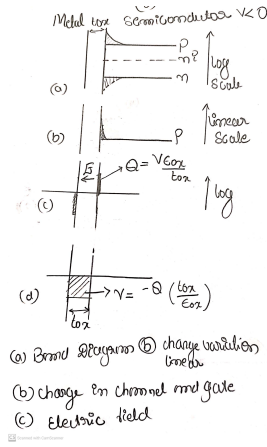 Metal tox Semiconductor V<0
P
ni
n
Log
Scale
(a)
(b)
P
Linear
Scale
ξ
Q = VЄox
tox
(c)
Log
(d)
V = -Q (tox
Єox)
tox
(a) Band Diagram (b) change variation
linear
(b) charge in channel and gate
(c) Electric field
Scanned with CamScanner